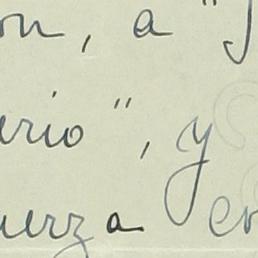 on, a "
erio", y
uerza en